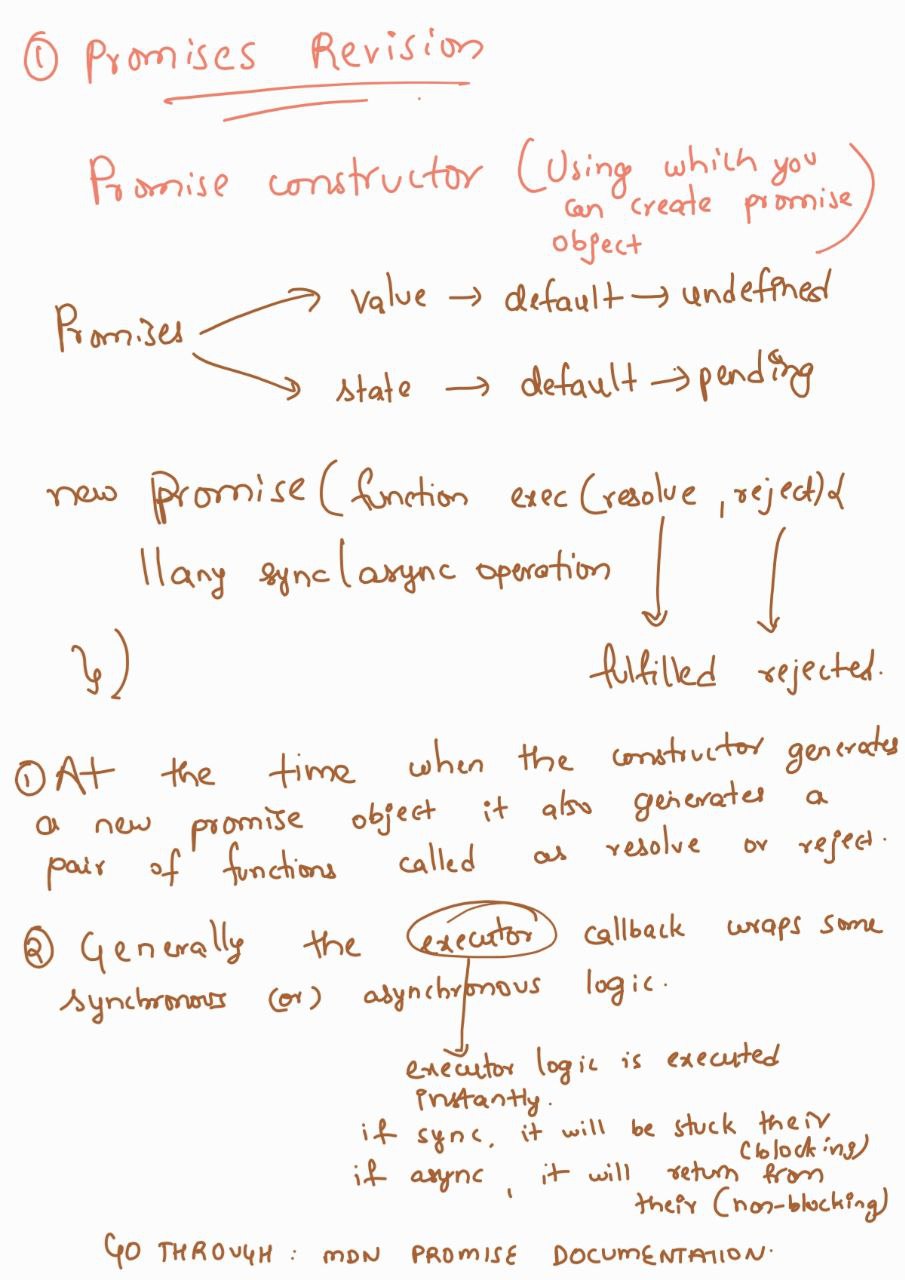 ① Promises Revision
Promise constructor (Using which you
can create promise
object)
Promises → value → default → undefined
→ state → default → pending
new Promise(function exec(resolve, reject){
//any sync/async operation
})
fulfilled rejected.
① At the time when the constructor generates
a new promise object it also generates a
pair of functions called as resolve or reject.
② Generally the executor callback wraps some
synchronous (or) asynchronous logic.
executor logic is executed
instantly.
if sync, it will be stuck their
(blocking)
if async, it will return from
their (non-blocking)
GO THROUGH : MDN PROMISE DOCUMENTATION.